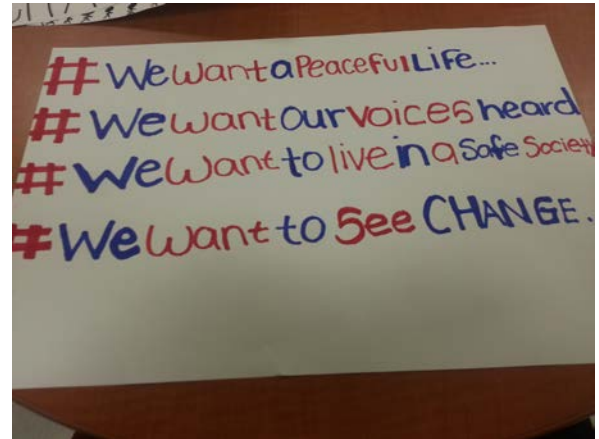 #WeWantaPeacefulLife...
#WeWantOurvoicesheard
#WeWanttoliveinaSafeSociety
#WeWanttoSeeCHANGE.